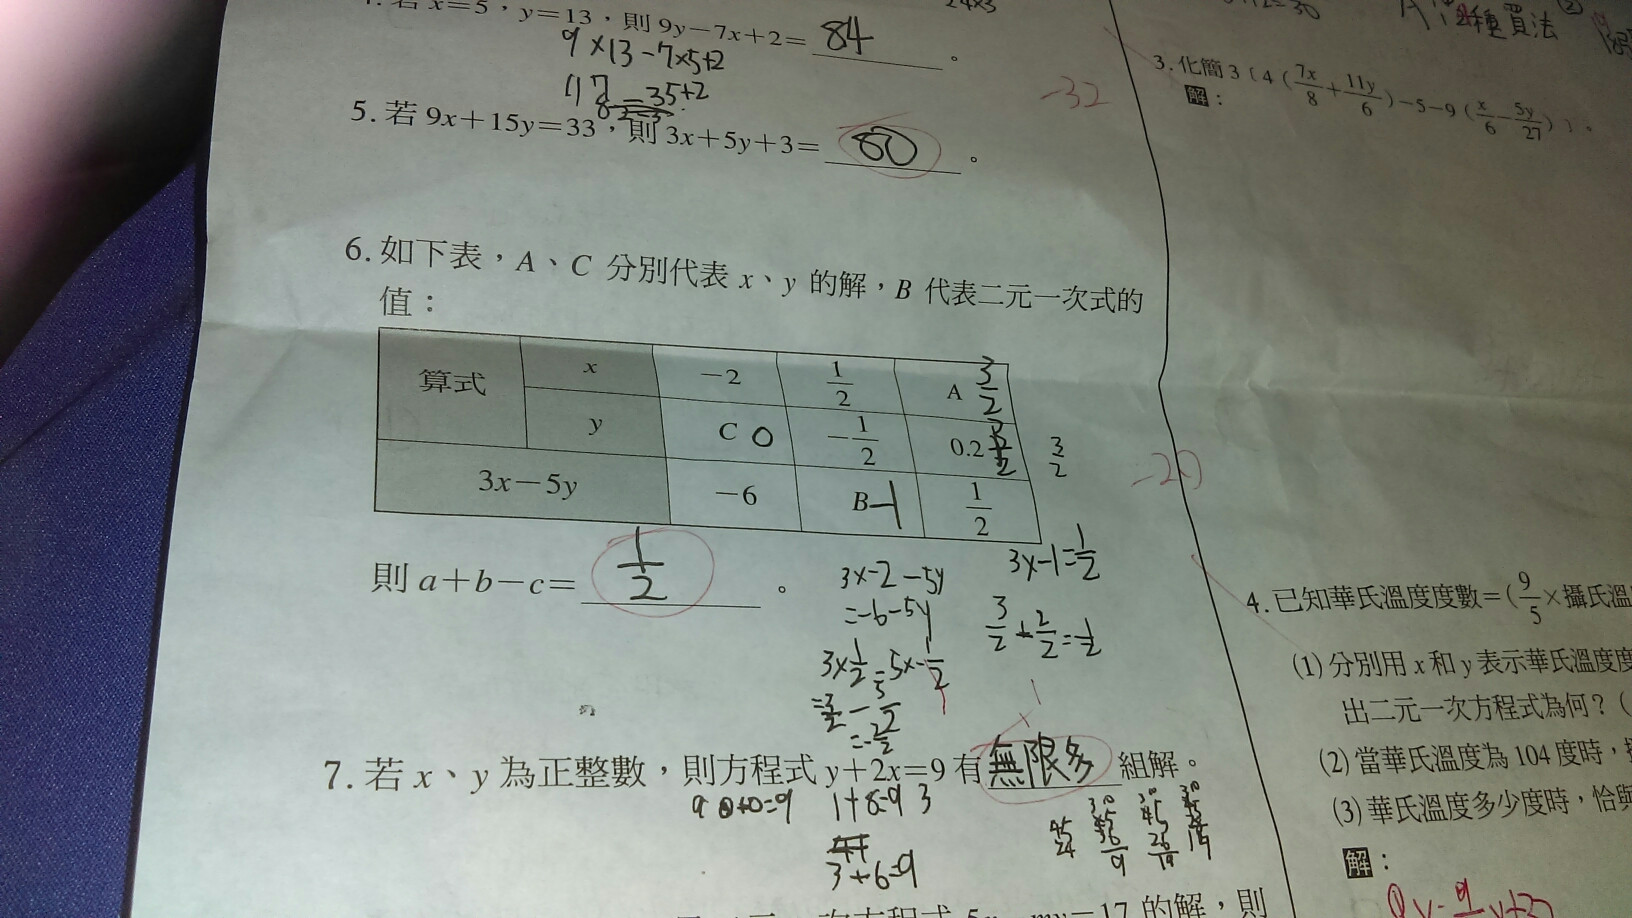 若x=5，y=13，則9y−7x+2= 84 。
9×13−7×5+2
117−35+2
5. 若9x+15y=33，則3x+5y+3= 80 。
-32
6. 如下表，A、C 分別代表 x、y 的解，B 代表二元一次式的
值：
算式 x −2 1/2 A 3/2
y C 0 −1/2 0.2
3/2
3x−5y −6 B -1 1/2
-29
則 a+b−c= 1/2 。
3x-2-5y
=-6-5y
3×1/2-5×-1/2
=3/2-5/2
=-2/2
3x-1=1/2
7. 若 x、y 為正整數，則方程式 y+2x=9 有 無限多 組解。
1+8=9 3
3+6=9
的解，則
2種買法
3. 化簡 3〔4（7x/8+11y/6）−5−9（x/6−5y/27）〕。
解：
4. 已知華氏溫度度數=（9/5×攝氏溫
(1) 分別用 x 和 y 表示華氏溫度度
出二元一次方程式為何？（
(2) 當華氏溫度為 104 度時，
(3) 華氏溫度多少度時，恰與
解：